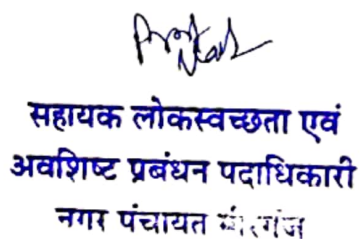 सहायक लोकस्वच्छता एवं
अवशिष्ट प्रबंधन पदाधिकारी
नगर पंचायत